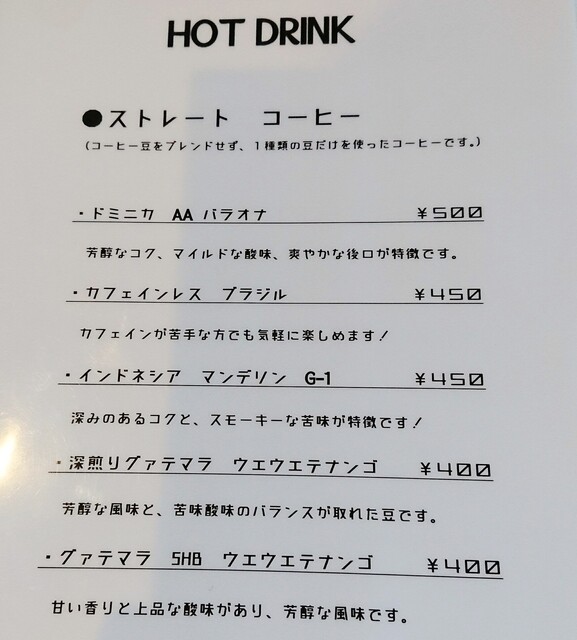 HOT DRINK
●ストレート コーヒー
(コーヒー豆をブレンドせず、1種類の豆だけを使ったコーヒーです。)
・ドミニカ AA バラオナ ¥500
芳醇なコク、マイルドな酸味、爽やかな後口が特徴です。
・カフェインレス ブラジル ¥450
カフェインが苦手な方でも気軽に楽しめます!
・インドネシア マンデリン G-1 ¥450
深みのあるコクと、スモーキーな苦味が特徴です!
・深煎りグァテマラ ウエウエテナンゴ ¥400
芳醇な風味と、苦味酸味のバランスが取れた豆です。
・グァテマラ SHB ウエウエテナンゴ ¥400
甘い香りと上品な酸味があり、芳醇な風味です。